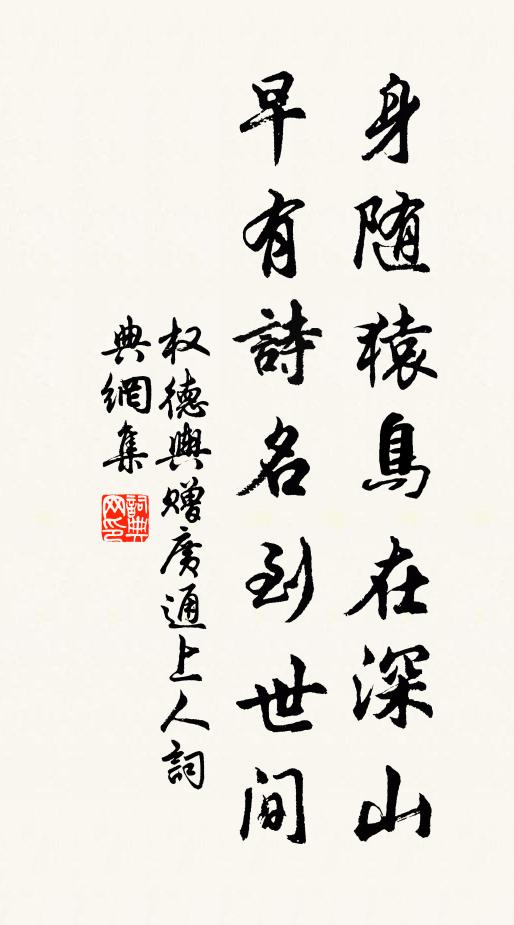 身随猿鳥在深山
早有詩名到世间
权德輿赠广通上人詞
典網集
詞典
网印